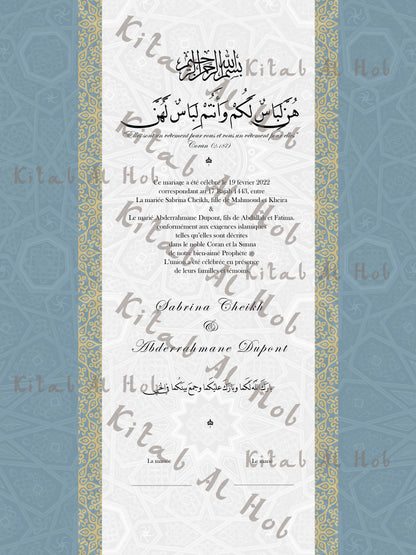 Kitab Al Hob
بسم الله الرحمن الرحيم
هُنَّ لِبَاسٌ لَكُمْ وَأَنْتُمْ لِبَاسٌ لَهُنَّ
"Elles sont un vêtement pour vous et vous un vêtement pour elles"
Coran (2.187)
Ce mariage a été célébré le 19 février 2022
correspondant au 17 Rajab 1443, entre
La mariée Sabrina Cheikh, fille de Mahmoud et Kheira
&
Le marié Abderrahmane Dupont, fils de Abdullah et Fatima.
conformément aux exigences islamiques
telles qu'elles sont décrites
dans le noble Coran et la Sunna
de notre bien-aimé Prophète ﷺ
L'union a été célébrée en présence
de leurs familles et témoins.
Sabrina Cheikh
&
Abderrahmane Dupont
بارك الله لكما وبارك عليكما وجمع بينكما في الخير
La mariée Le marié
Kitab Al Hob